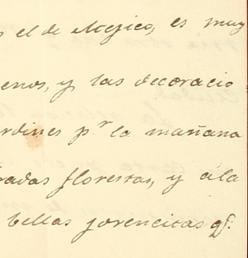 s el de Mejico, es muy
enos, y las decoracio
rdines p.r la mañana
radas florestas, y á la
bellas jovencitas q.e